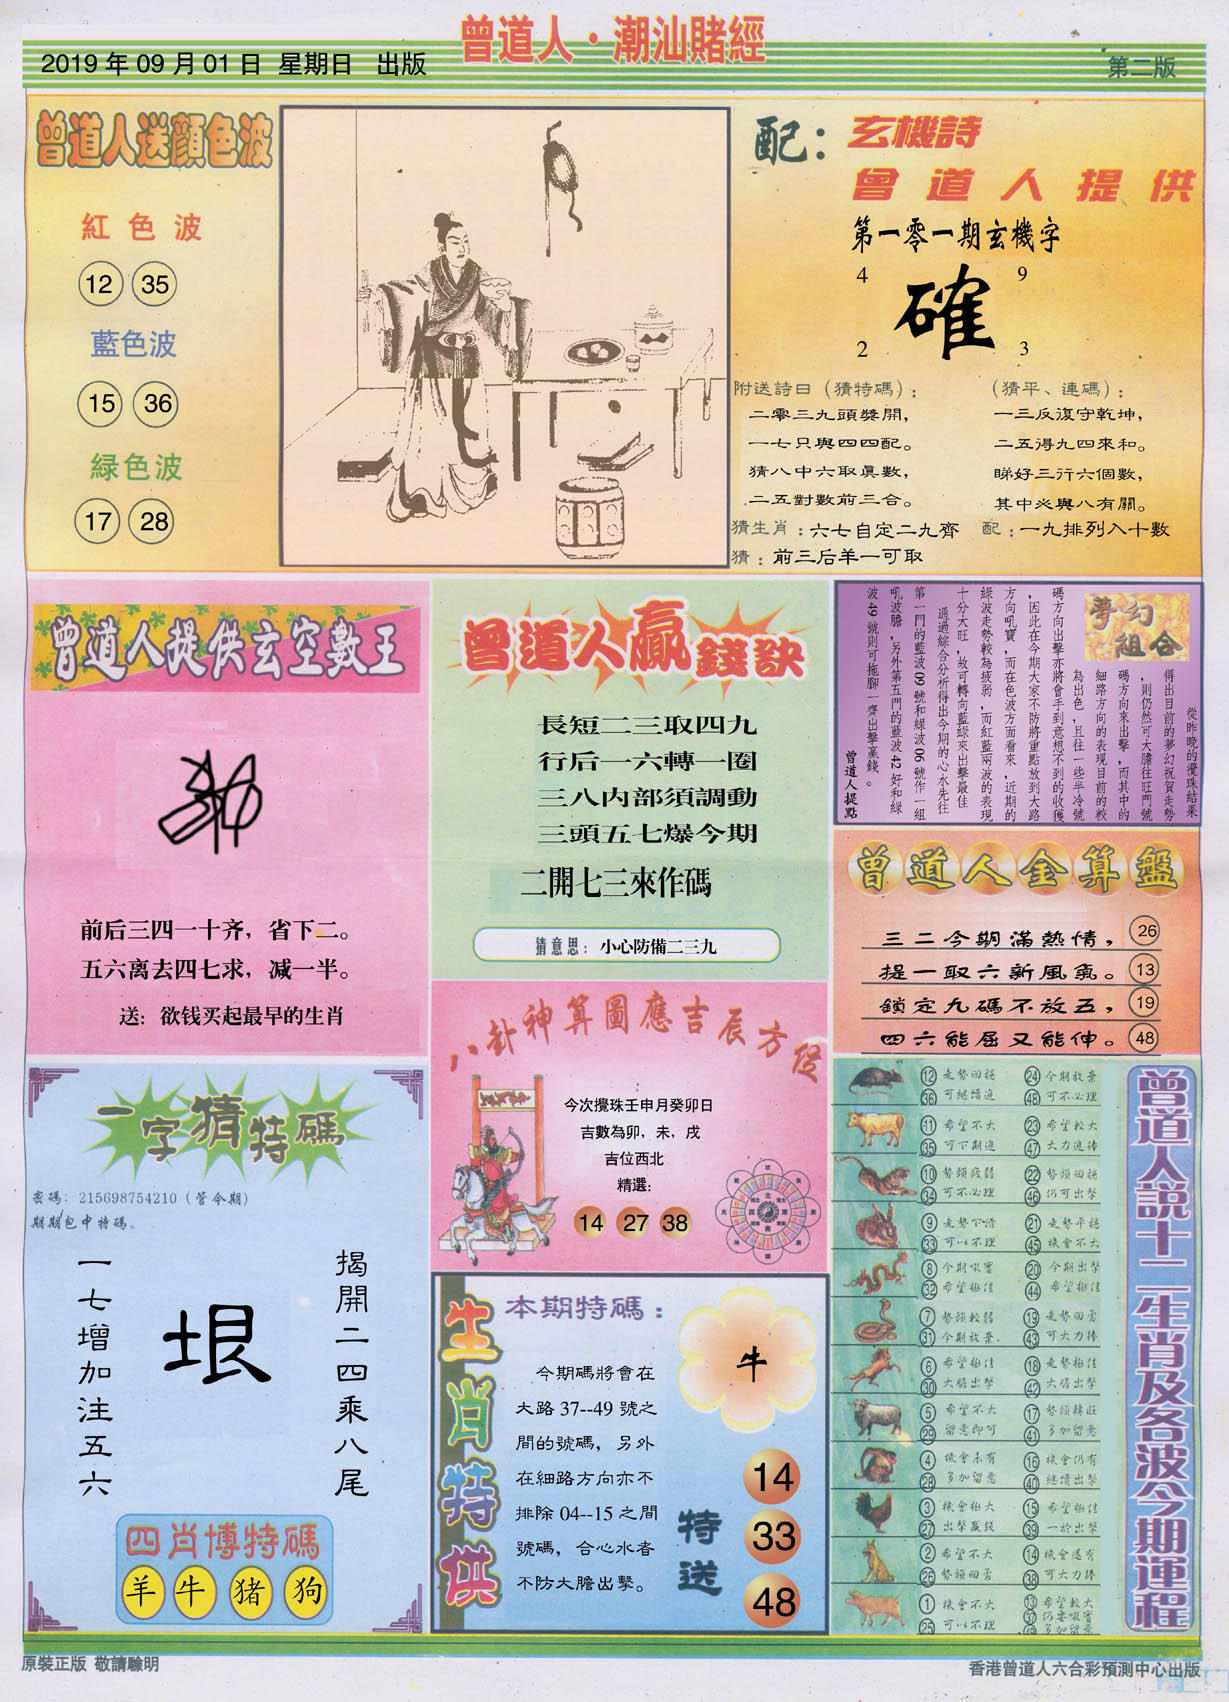 曾道人·潮汕賭經
2019 年 09 月 01 日 星期日 出版
第二版
曾道人送顏色波
紅色波
12 35
藍色波
15 36
綠色波
17 28
配：玄機詩
曾道人提供
第一零一期玄機字
4 9
確
2 3
附送詩曰（猜特碼）：
二零三九頭獎開，
一七只與四四配。
猜八中六取眞數，
二五對數前三合。
（猜平、連碼）：
一三反復守乾坤，
二五得九四來和。
睇好三行六個數，
其中必與八有關。
猜生肖：六七自定二九齊 配：一九排列入十數
猜：前三后羊一可取
曾道人提供玄空數王
前后三四一十齐，省下二。
五六离去四七求，减一半。
送：欲钱买起最早的生肖
曾道人贏錢訣
長短二三取四九
行后一六轉一圈
三八内部須調動
三頭五七爆今期
二開七三來作碼
猜意思：小心防備二三九
夢幻組合
從昨晚的攪珠結果
得出目前的夢幻祝賀走勢
，則仍然可大膽往旺門號
碼方向來出擊，而其中的
細路方向的表現目前的較
為出色，且往一些半冷號
碼方向出擊亦將會手到意想不到的收獲
，因此在今期大家不防將重點放到大路
方向吼寶，而在色波方面看來，近期的
綠波走勢較為疲弱，而紅藍兩波的表現
十分大旺，故可轉向藍綠來出擊最佳
通過綜合分析得出今期的心水先往
第一門的藍波 09 號和綠波 06 號作一組
吼波膽，另外第五門的藍波 42 好和綠
波 49 號則可拖腳一齊出擊贏錢。
曾道人提點
曾道人金算盤
三二今期滿熱情， 26
提一取六新風氣。 13
鎖定九碼不放五， 19
四六能屈又能伸。 48
八卦神算圖應吉辰方位
今次攪珠壬申月癸卯日
吉數為卯，未，戌
吉位西北
精選：
14 27 38
一字猜特碼
密碼：215698754210（管今期）
期期包中特碼。
揭開二四乘八尾
垠
一七增加注五六
四肖博特碼
羊 牛 猪 狗
生肖特供
本期特碼：
牛
今期碼將會在
大路 37--49 號之
間的號碼，另外
在細路方向亦不
排除 04--15 之間
號碼，合心水者
不防大膽出擊。
特送
14
33
48
曾道人說十二生肖及各波今期運程
12 走勢回穩 24 今期放棄
36 可继續追 48 可不必理
11 希望不大 23 希望較大
35 可下期追 47 大力追捧
10 勢頭疲弱 22 勢頭回穩
34 可不必理 46 仍可出擊
9 走勢下滑 21 走勢平穩
33 可以不理 45 機會不大
8 今期吸寶 20 今期出擊
32 希望極佳 44 希望極佳
7 勢頭較弱 19 走勢回勇
31 今期放棄. 43 可大力捧
6 希望極佳 18 走勢極佳
30 大膽出擊 42 大膽出擊
5 希望不大 17 勢頭轉旺
29 留意即可 41 多加留意
4 機會未有 16 機會仍有
28 多加留意 40 继續出擊
3 機會極大 15 希望極佳
27 出擊贏錢 39 一於出擊
2 希望不大 14 機會還有
26 勢頭回勇 38 可大力捧
1 機會不大 13 希望較大
25 可以不理 37 仍要吸寶
49 多加留意
原裝正版 敬請驗明
香港曾道人六合彩預測中心出版